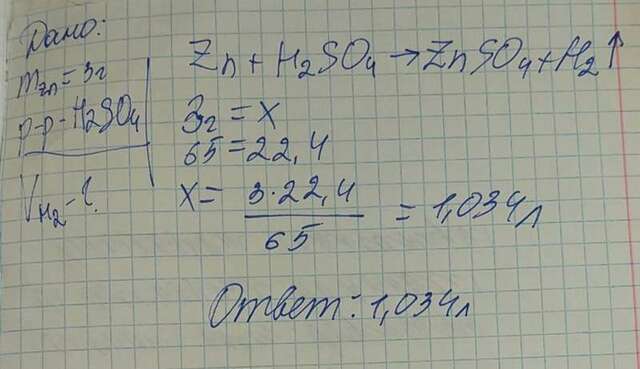 Дано:
m Zn = 3г
р-р - H2SO4
V H2 - ?
Zn + H2SO4 → ZnSO4 + H2↑
3г = X
65 = 22,4
X = 3·22,4 / 65 = 1,034л
Ответ: 1,034л